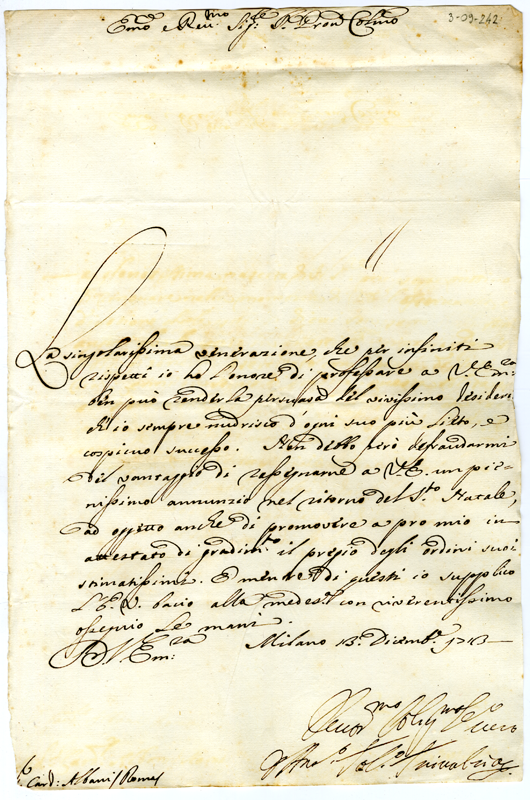 3-09-242
Emo e Revmo Sigre Pron Colmo
La singolarissima venerazione, che per infiniti
rispetti io hò l'onore di professare a V. Emra
ben può renderla persuasa del vivissimo desiderio
ch'io sempre nudrisco d'ogni suo più lieto, e
cospicuo successo. Non debbo però defraudarmi
del vantaggio di rassegnarne a V.E. un pie-
nissimo annunzio nel ritorno del Sto Natale,
ad oggetto anche di promovere a pro mio in
attestato di gradimto il pregio degli ordini suoi
stimatissimi. E mentre di questi io supplico
l'E.V. bacio alla medesa con riverentissimo
ossequio le mani.
Di V. Emra Milano 13 Dicembe 1713
Card: Albani Roma